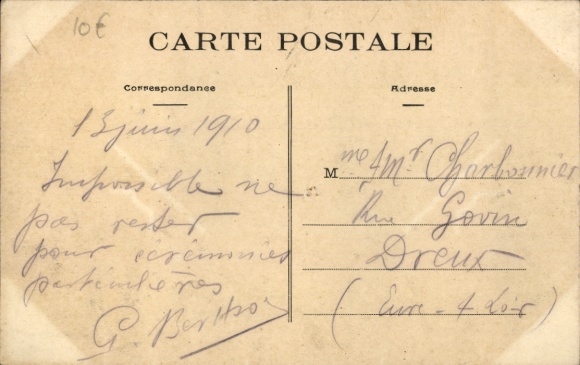 10€
CARTE POSTALE
Correspondance
Adresse
13 juin 1910
Impossible ne
pas rester
pour cérémonies
particulières
G. Berthoi
Mme & Mr Charbonnier
Rue Govin
Dreux
(Eure-&-Loir)